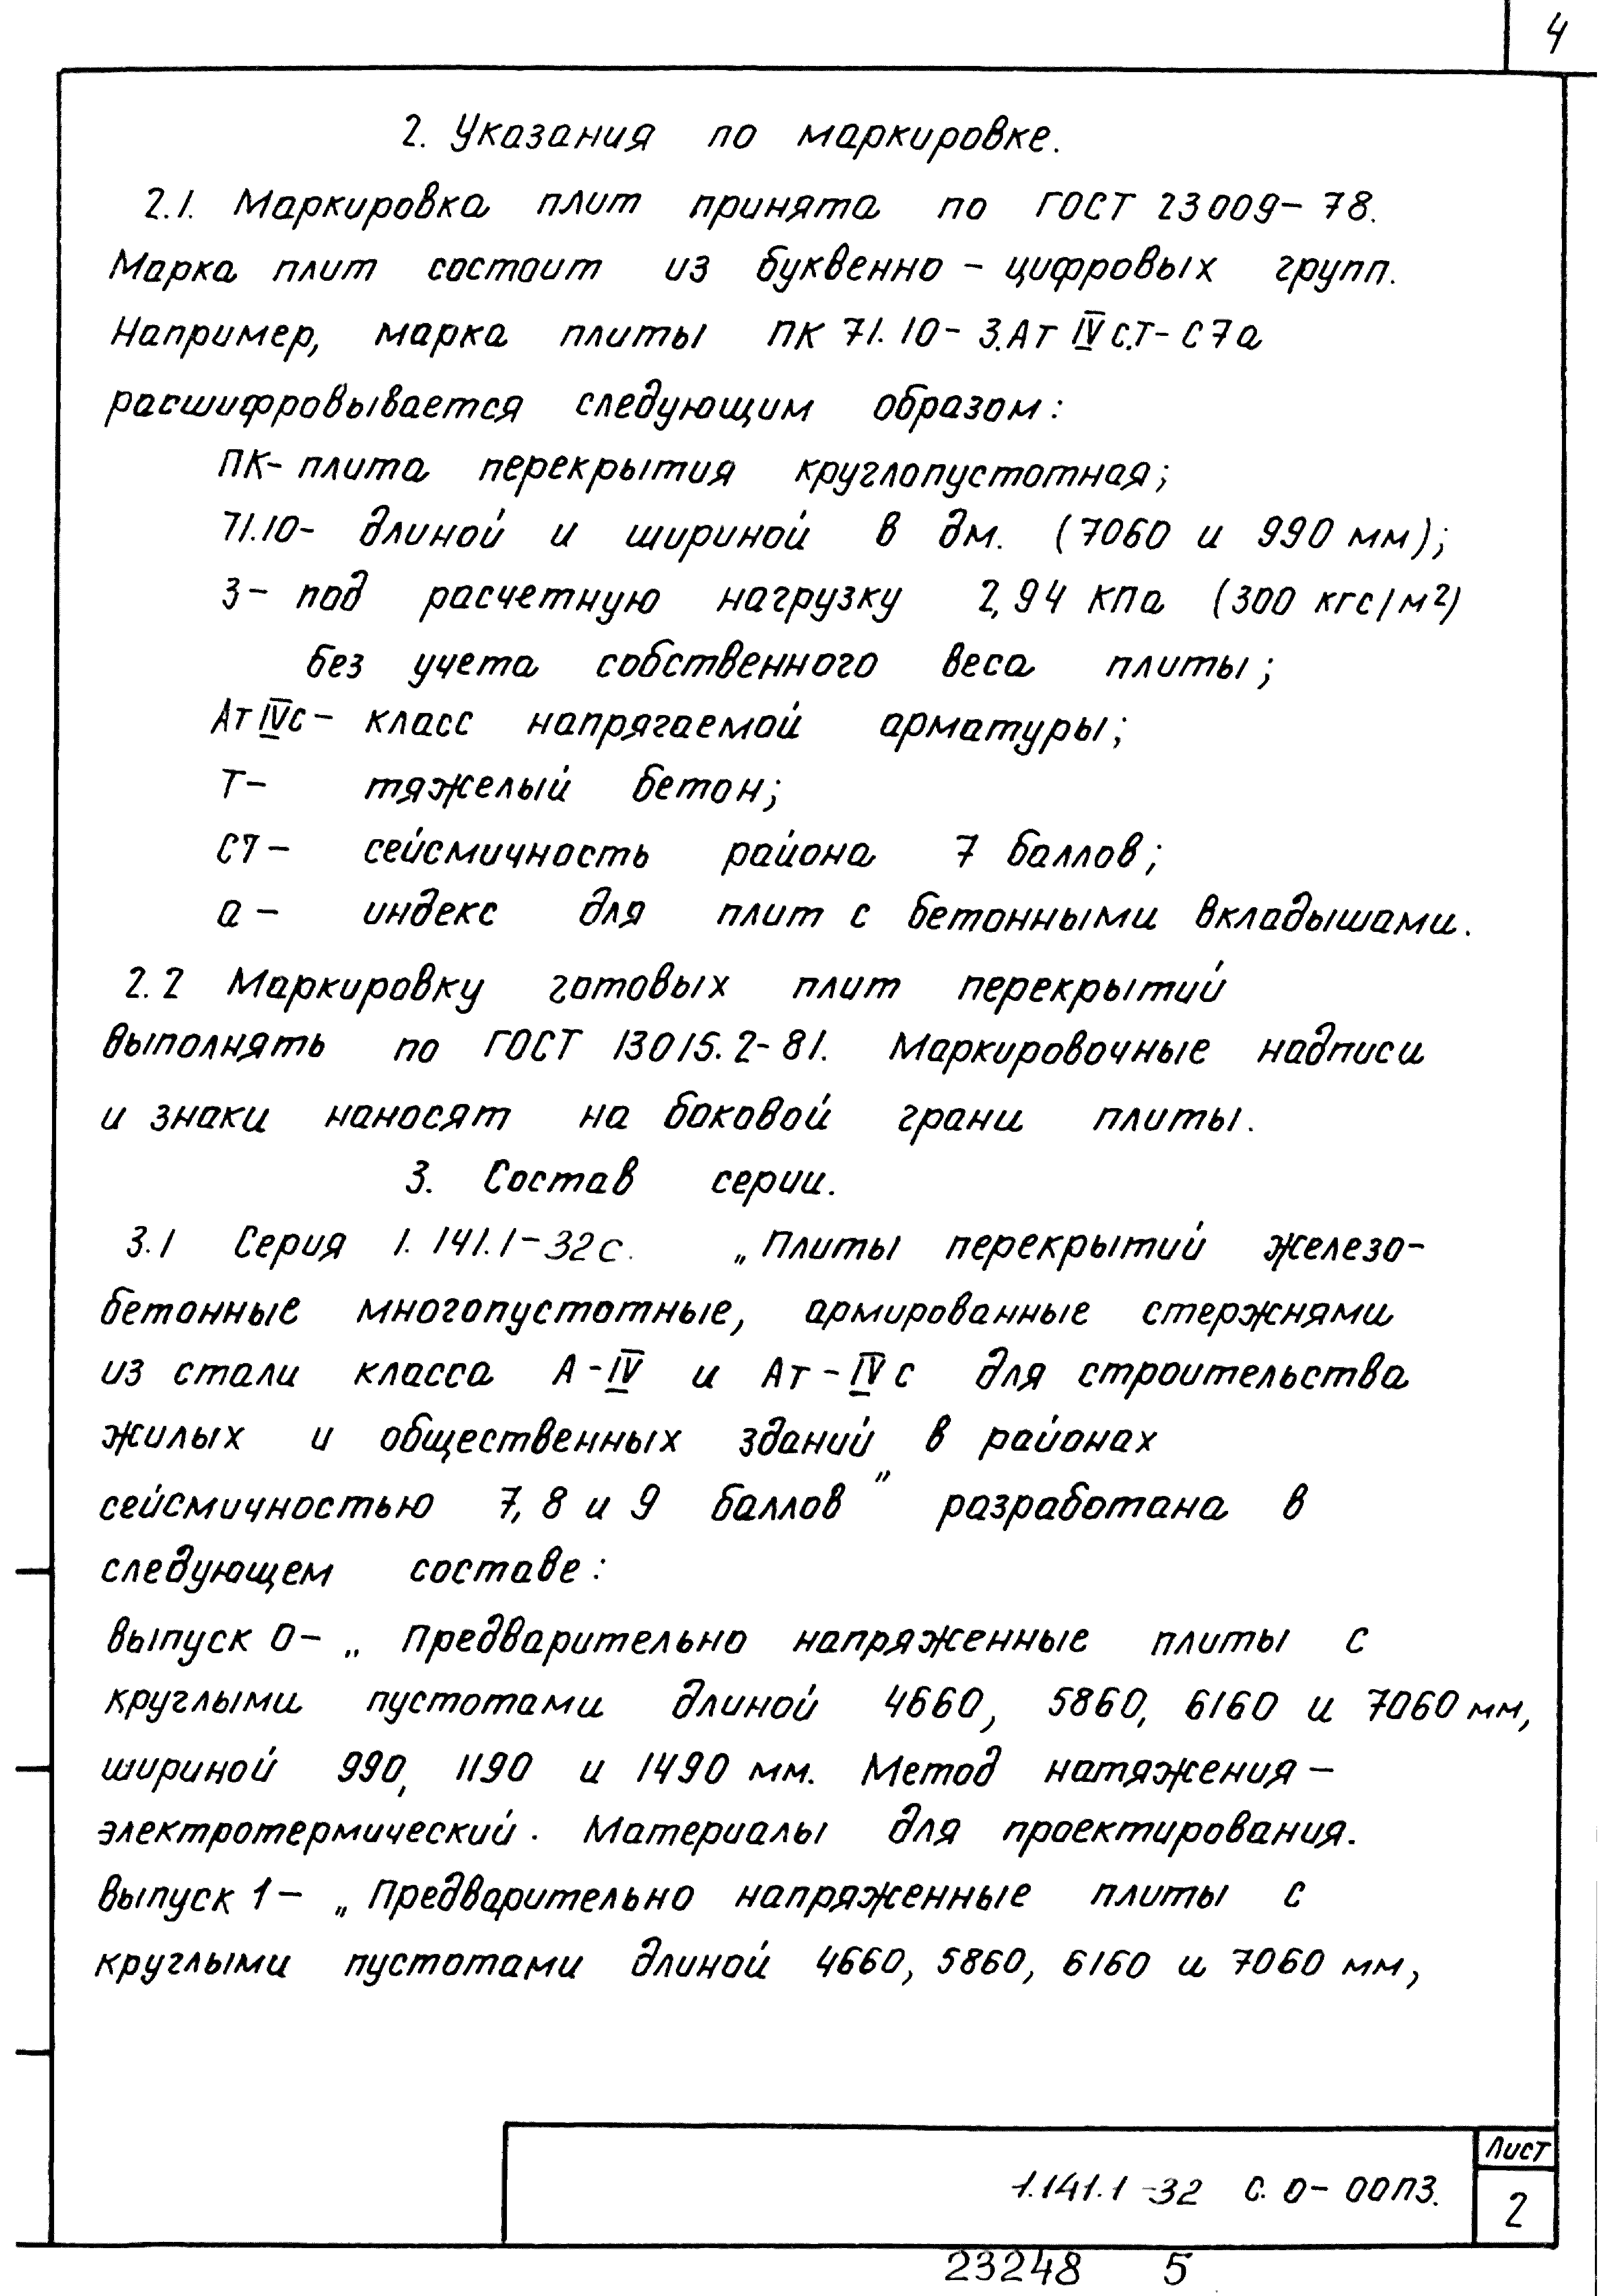 4
2. Указания по маркировке.
2.1. Маркировка плит принята по ГОСТ 23009-78.
Марка плит состоит из буквенно - цифровых групп.
Например, марка плиты ПК 71.10-3.Ат IV С.Т-С7а
расшифровывается следующим образом:
ПК- плита перекрытия круглопустотная;
71.10- длиной и шириной в дм. (7060 и 990 мм);
3- под расчетную нагрузку 2,94 кПа (300 кгс/м²)
без учета собственного веса плиты;
Ат IVс- класс напрягаемой арматуры;
Т- тяжелый бетон;
С7- сейсмичность района 7 баллов;
а- индекс для плит с бетонными вкладышами.
2.2 Маркировку готовых плит перекрытий
выполнять по ГОСТ 13015.2-81. Маркировочные надписи
и знаки наносят на боковой грани плиты.
3. Состав серии.
3.1 Серия 1.141.1-32с. „Плиты перекрытий железо-
бетонные многопустотные, армированные стержнями
из стали класса А-IV и Ат-IVс для строительства
жилых и общественных зданий в районах
сейсмичностью 7, 8 и 9 баллов" разработана в
следующем составе:
выпуск 0- „Предварительно напряженные плиты с
круглыми пустотами длиной 4660, 5860, 6160 и 7060 мм,
шириной 990, 1190 и 1490 мм. Метод натяжения-
электротермический. Материалы для проектирования.
выпуск 1- „Предварительно напряженные плиты с
круглыми пустотами длиной 4660, 5860, 6160 и 7060 мм,
1.141.1-32 С. 0-00ПЗ.
Лист
2
23248 5